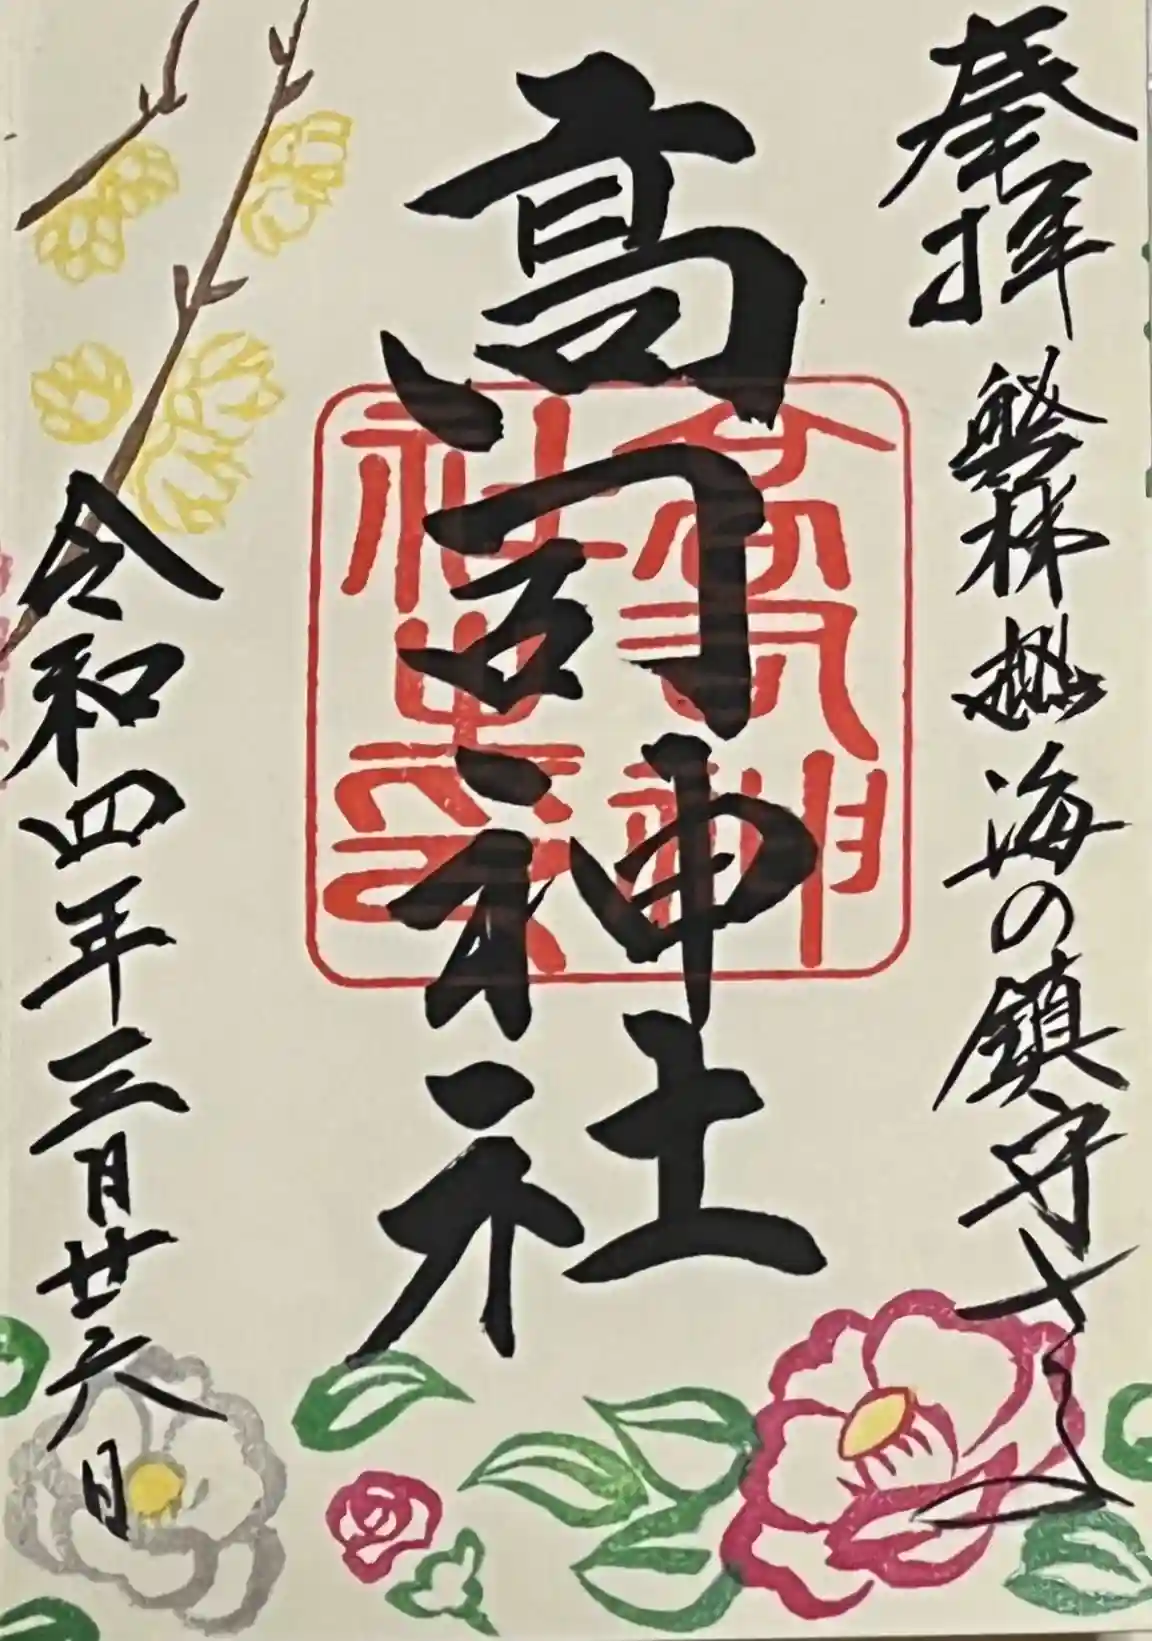 奉拝 磐梯熱海の鎮守さま
高司神社
高司神
社之印
令和四年三月廿六日